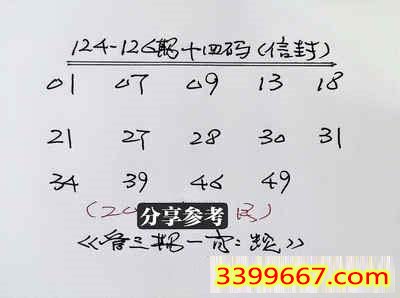 124-126期十四码(信封)
01 07 09 13 18
21 27 28 30 31
34 39 46 49
(20 分享参考
《管三期一
3399667.com